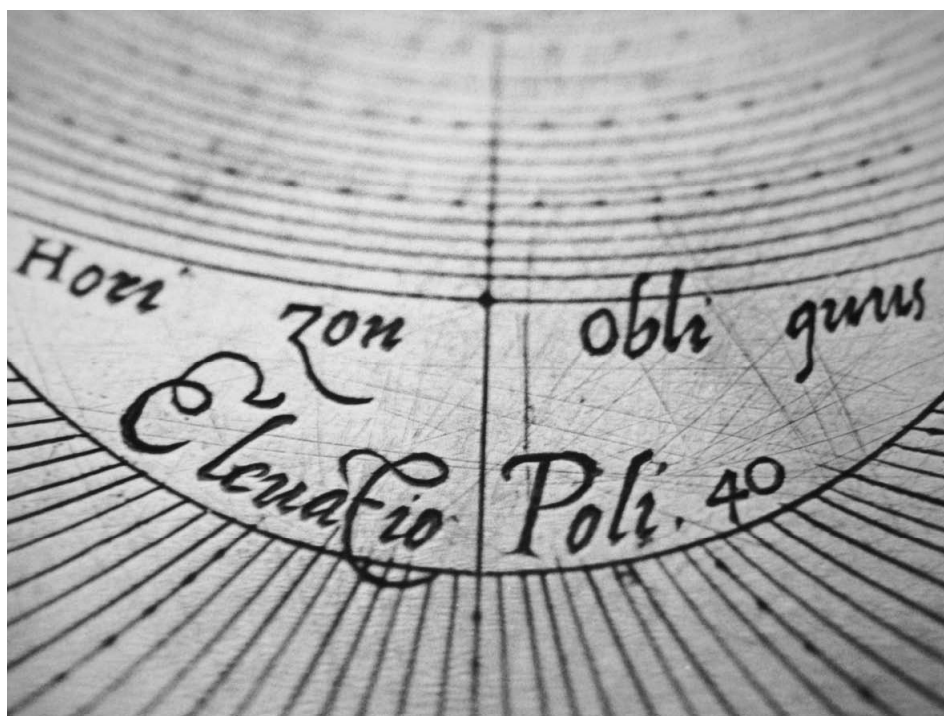 Hori zon obli quus
Eleuatio Poli. 40